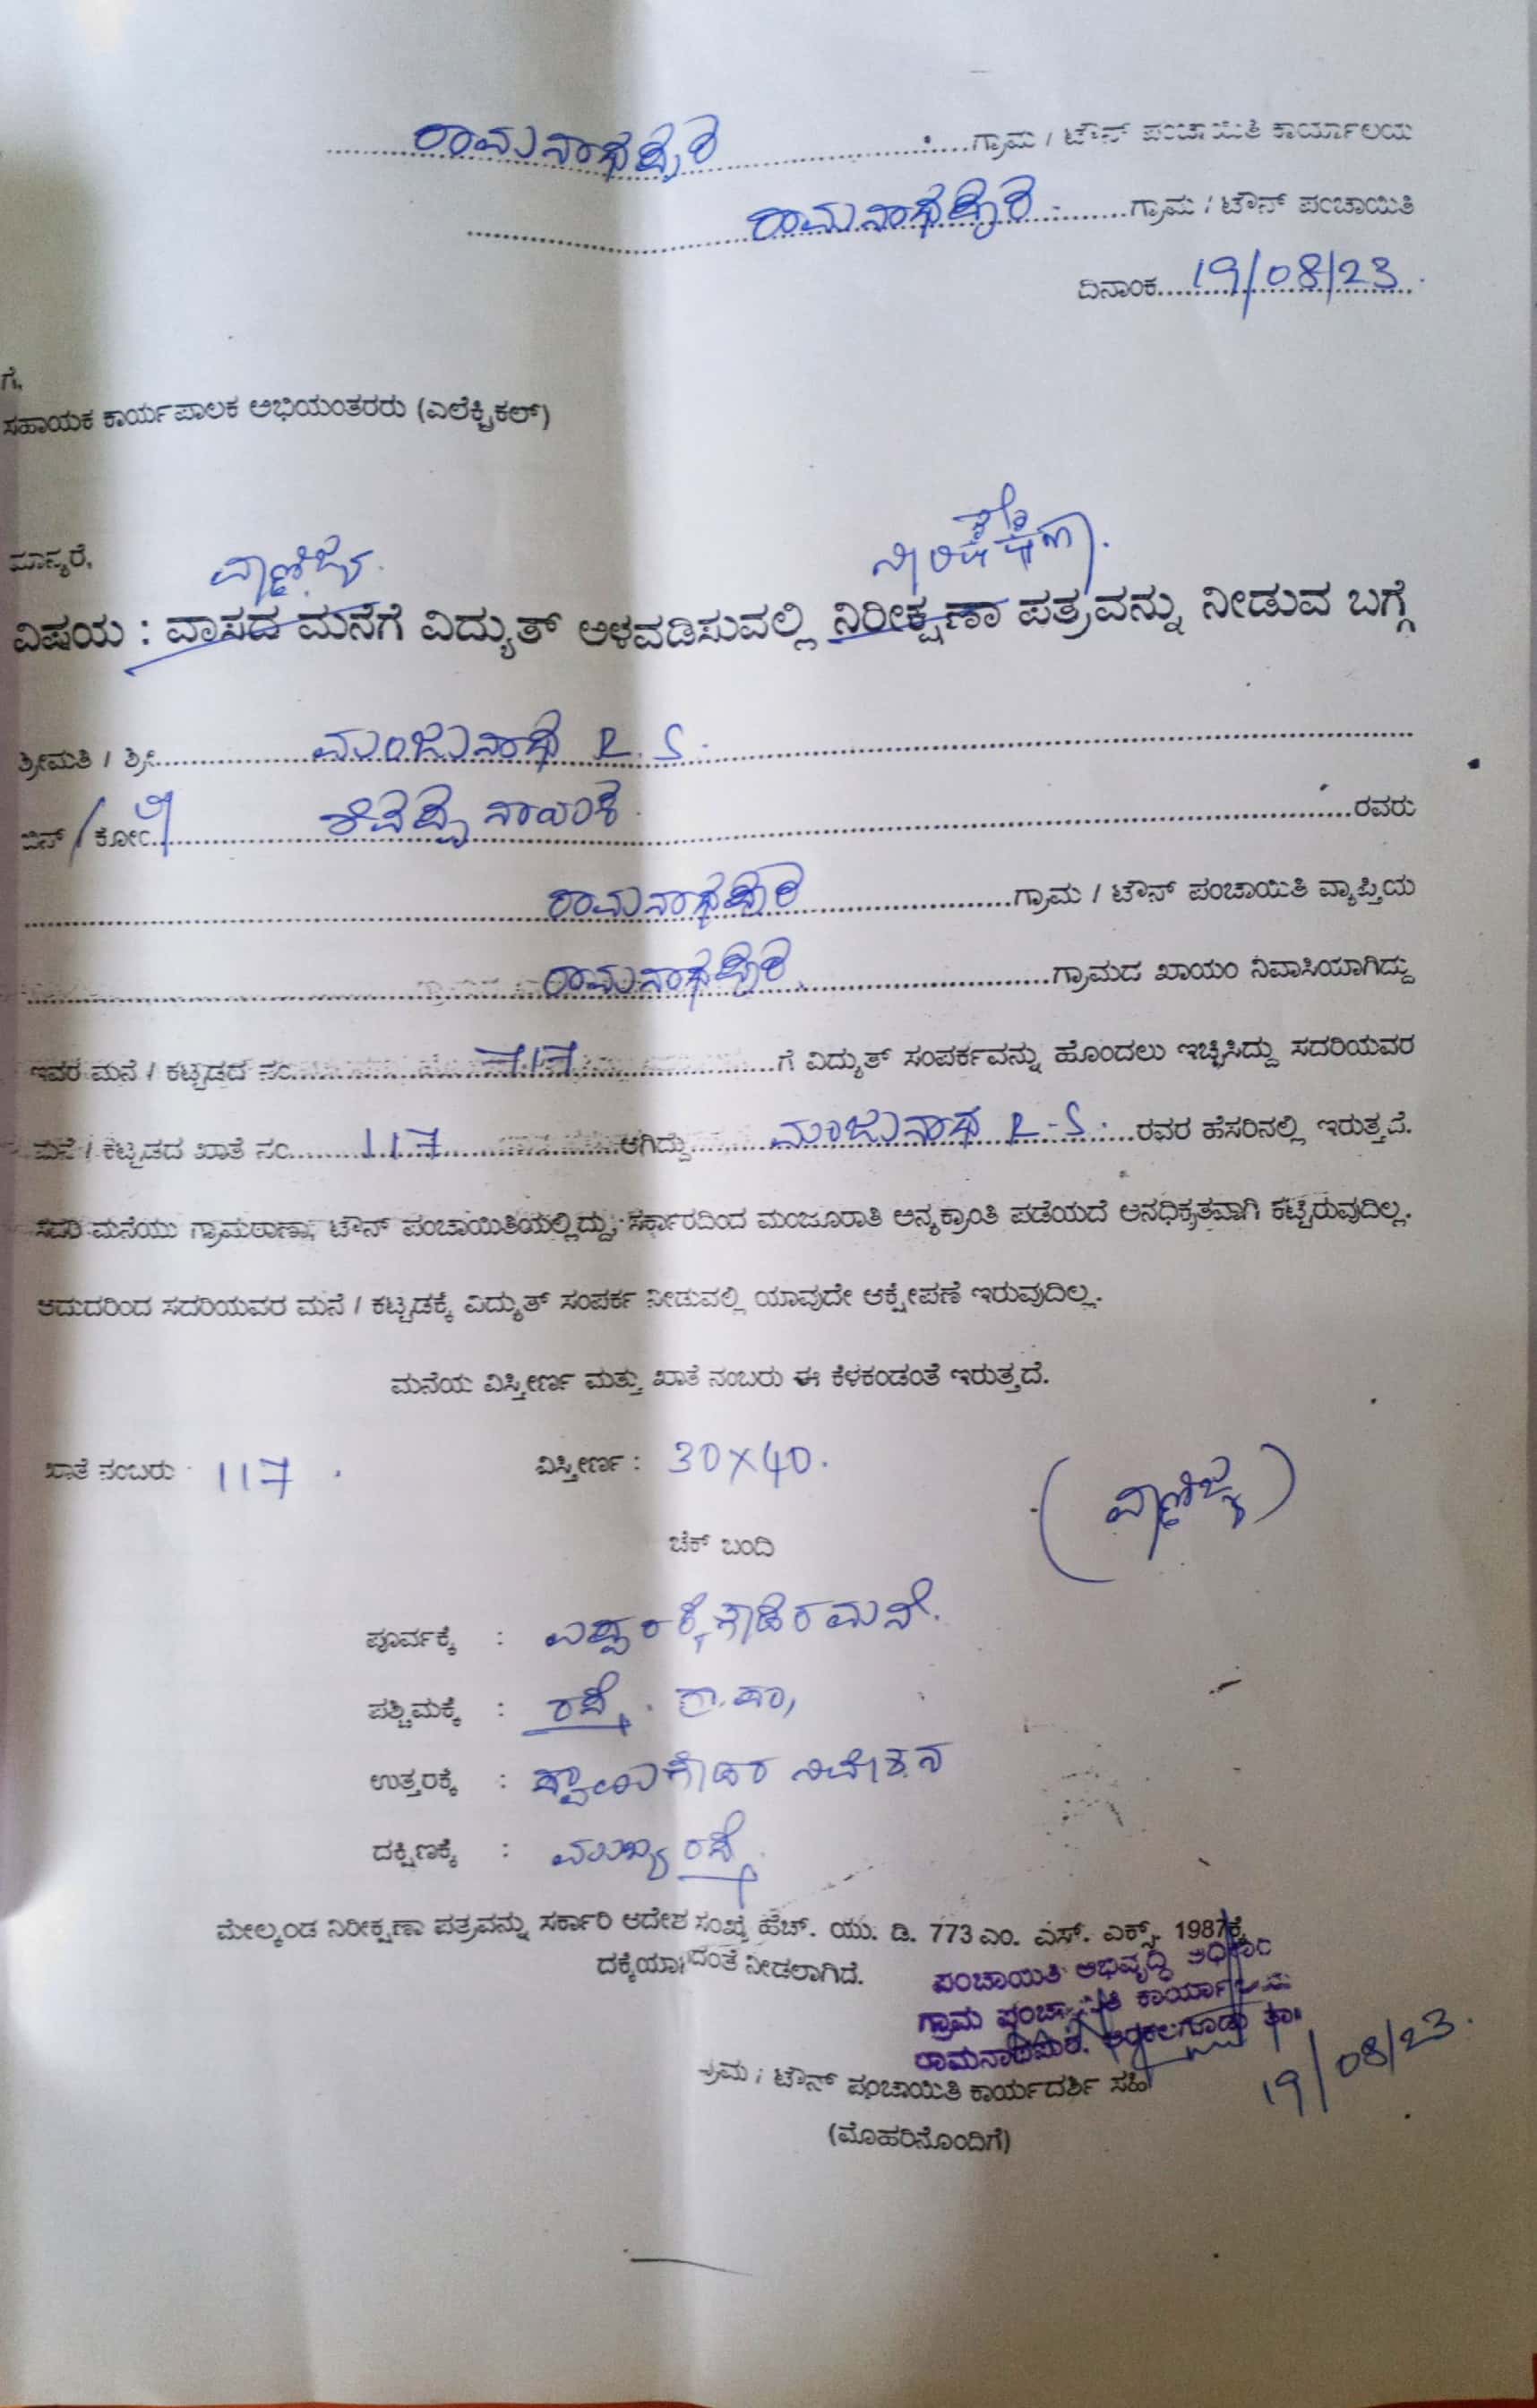 ರಾಮನಾಥಪುರ ಗ್ರಾಮ / ಟೌನ್ ಪಂಚಾಯಿತಿ ಕಾರ್ಯಾಲಯ
ರಾಮನಾಥಪುರ ಗ್ರಾಮ / ಟೌನ್ ಪಂಚಾಯಿತಿ
ದಿನಾಂಕ 19/08/23
ಗೆ,
ಸಹಾಯಕ ಕಾರ್ಯಪಾಲಕ ಅಭಿಯಂತರರು (ಎಲೆಕ್ಟ್ರಿಕಲ್)
ಮಾನ್ಯರೆ,
ವಾಣಿಜ್ಯ
ವಿಷಯ : ವಾಸದ ಮನೆಗೆ ವಿದ್ಯುತ್ ಅಳವಡಿಸುವಲ್ಲಿ ನಿರೀಕ್ಷಣಾ ಪತ್ರವನ್ನು ನೀಡುವ ಬಗ್ಗೆ
ಶ್ರೀಮತಿ / ಶ್ರೀ ಮಂಜುನಾಥ R.S.
ಬಿನ್ / ಕೋಂ ರವರು
ರಾಮನಾಥಪುರ ಗ್ರಾಮ / ಟೌನ್ ಪಂಚಾಯಿತಿ ವ್ಯಾಪ್ತಿಯ
ರಾಮನಾಥಪುರ ಗ್ರಾಮದ ಖಾಯಂ ನಿವಾಸಿಯಾಗಿದ್ದು
ಇವರ ಮನೆ / ಕಟ್ಟಡದ ನಂ ಗೆ ವಿದ್ಯುತ್ ಸಂಪರ್ಕವನ್ನು ಹೊಂದಲು ಇಚ್ಛಿಸಿದ್ದು ಸದರಿಯವರ
ಮನೆ / ಕಟ್ಟಡದ ಖಾತೆ ನಂ 117 ಆಗಿದ್ದು ಮಂಜುನಾಥ R-S. ರವರ ಹೆಸರಿನಲ್ಲಿ ಇರುತ್ತದೆ.
ಸದರಿ ಮನೆಯು ಗ್ರಾಮಠಾಣಾ, ಟೌನ್ ಪಂಚಾಯಿತಿಯಲ್ಲಿದ್ದು, ಸರ್ಕಾರದಿಂದ ಮಂಜೂರಾತಿ ಅನ್ಯಕ್ರಾಂತಿ ಪಡೆಯದೆ ಅನಧಿಕೃತವಾಗಿ ಕಟ್ಟಿರುವುದಿಲ್ಲ.
ಆದುದರಿಂದ ಸದರಿಯವರ ಮನೆ / ಕಟ್ಟಡಕ್ಕೆ ವಿದ್ಯುತ್ ಸಂಪರ್ಕ ನೀಡುವಲ್ಲಿ ಯಾವುದೇ ಆಕ್ಷೇಪಣೆ ಇರುವುದಿಲ್ಲ.
ಮನೆಯ ವಿಸ್ತೀರ್ಣ ಮತ್ತು ಖಾತೆ ನಂಬರು ಈ ಕೆಳಕಂಡಂತೆ ಇರುತ್ತದೆ.
ಖಾತೆ ನಂಬರು 117. ವಿಸ್ತೀರ್ಣ : 30×40.
(ವಾಣಿಜ್ಯ)
ಚೆಕ್ ಬಂದಿ
ಪೂರ್ವಕ್ಕೆ :
ಪಶ್ಚಿಮಕ್ಕೆ : ರಸ್ತೆ. ಗ್ರಾ.ಪಂ,
ಉತ್ತರಕ್ಕೆ : ನಿವೇಶನ
ದಕ್ಷಿಣಕ್ಕೆ : ಮುಖ್ಯ ರಸ್ತೆ.
ಮೇಲ್ಕಂಡ ನಿರೀಕ್ಷಣಾ ಪತ್ರವನ್ನು ಸರ್ಕಾರಿ ಆದೇಶ ಸಂಖ್ಯೆ ಹೆಚ್. ಯು. ಡಿ. 773 ಎಂ. ಎಸ್. ಎಕ್ಸ್. 1987ಕ್ಕೆ
ದಕ್ಕೆಯಾಗದಂತೆ ನೀಡಲಾಗಿದೆ.
ಪಂಚಾಯಿತಿ ಅಭಿವೃದ್ಧಿ ಅಧಿಕಾರಿ
ಗ್ರಾಮ ಪಂಚಾಯಿತಿ ಕಾರ್ಯಾಲಯ
ರಾಮನಾಥಪುರ. ಅರಕಲಗೂಡು ತಾ॥
ಗ್ರಾಮ / ಟೌನ್ ಪಂಚಾಯಿತಿ ಕಾರ್ಯದರ್ಶಿ ಸಹಿ
19/08/23.
(ಮೊಹರಿನೊಂದಿಗೆ)